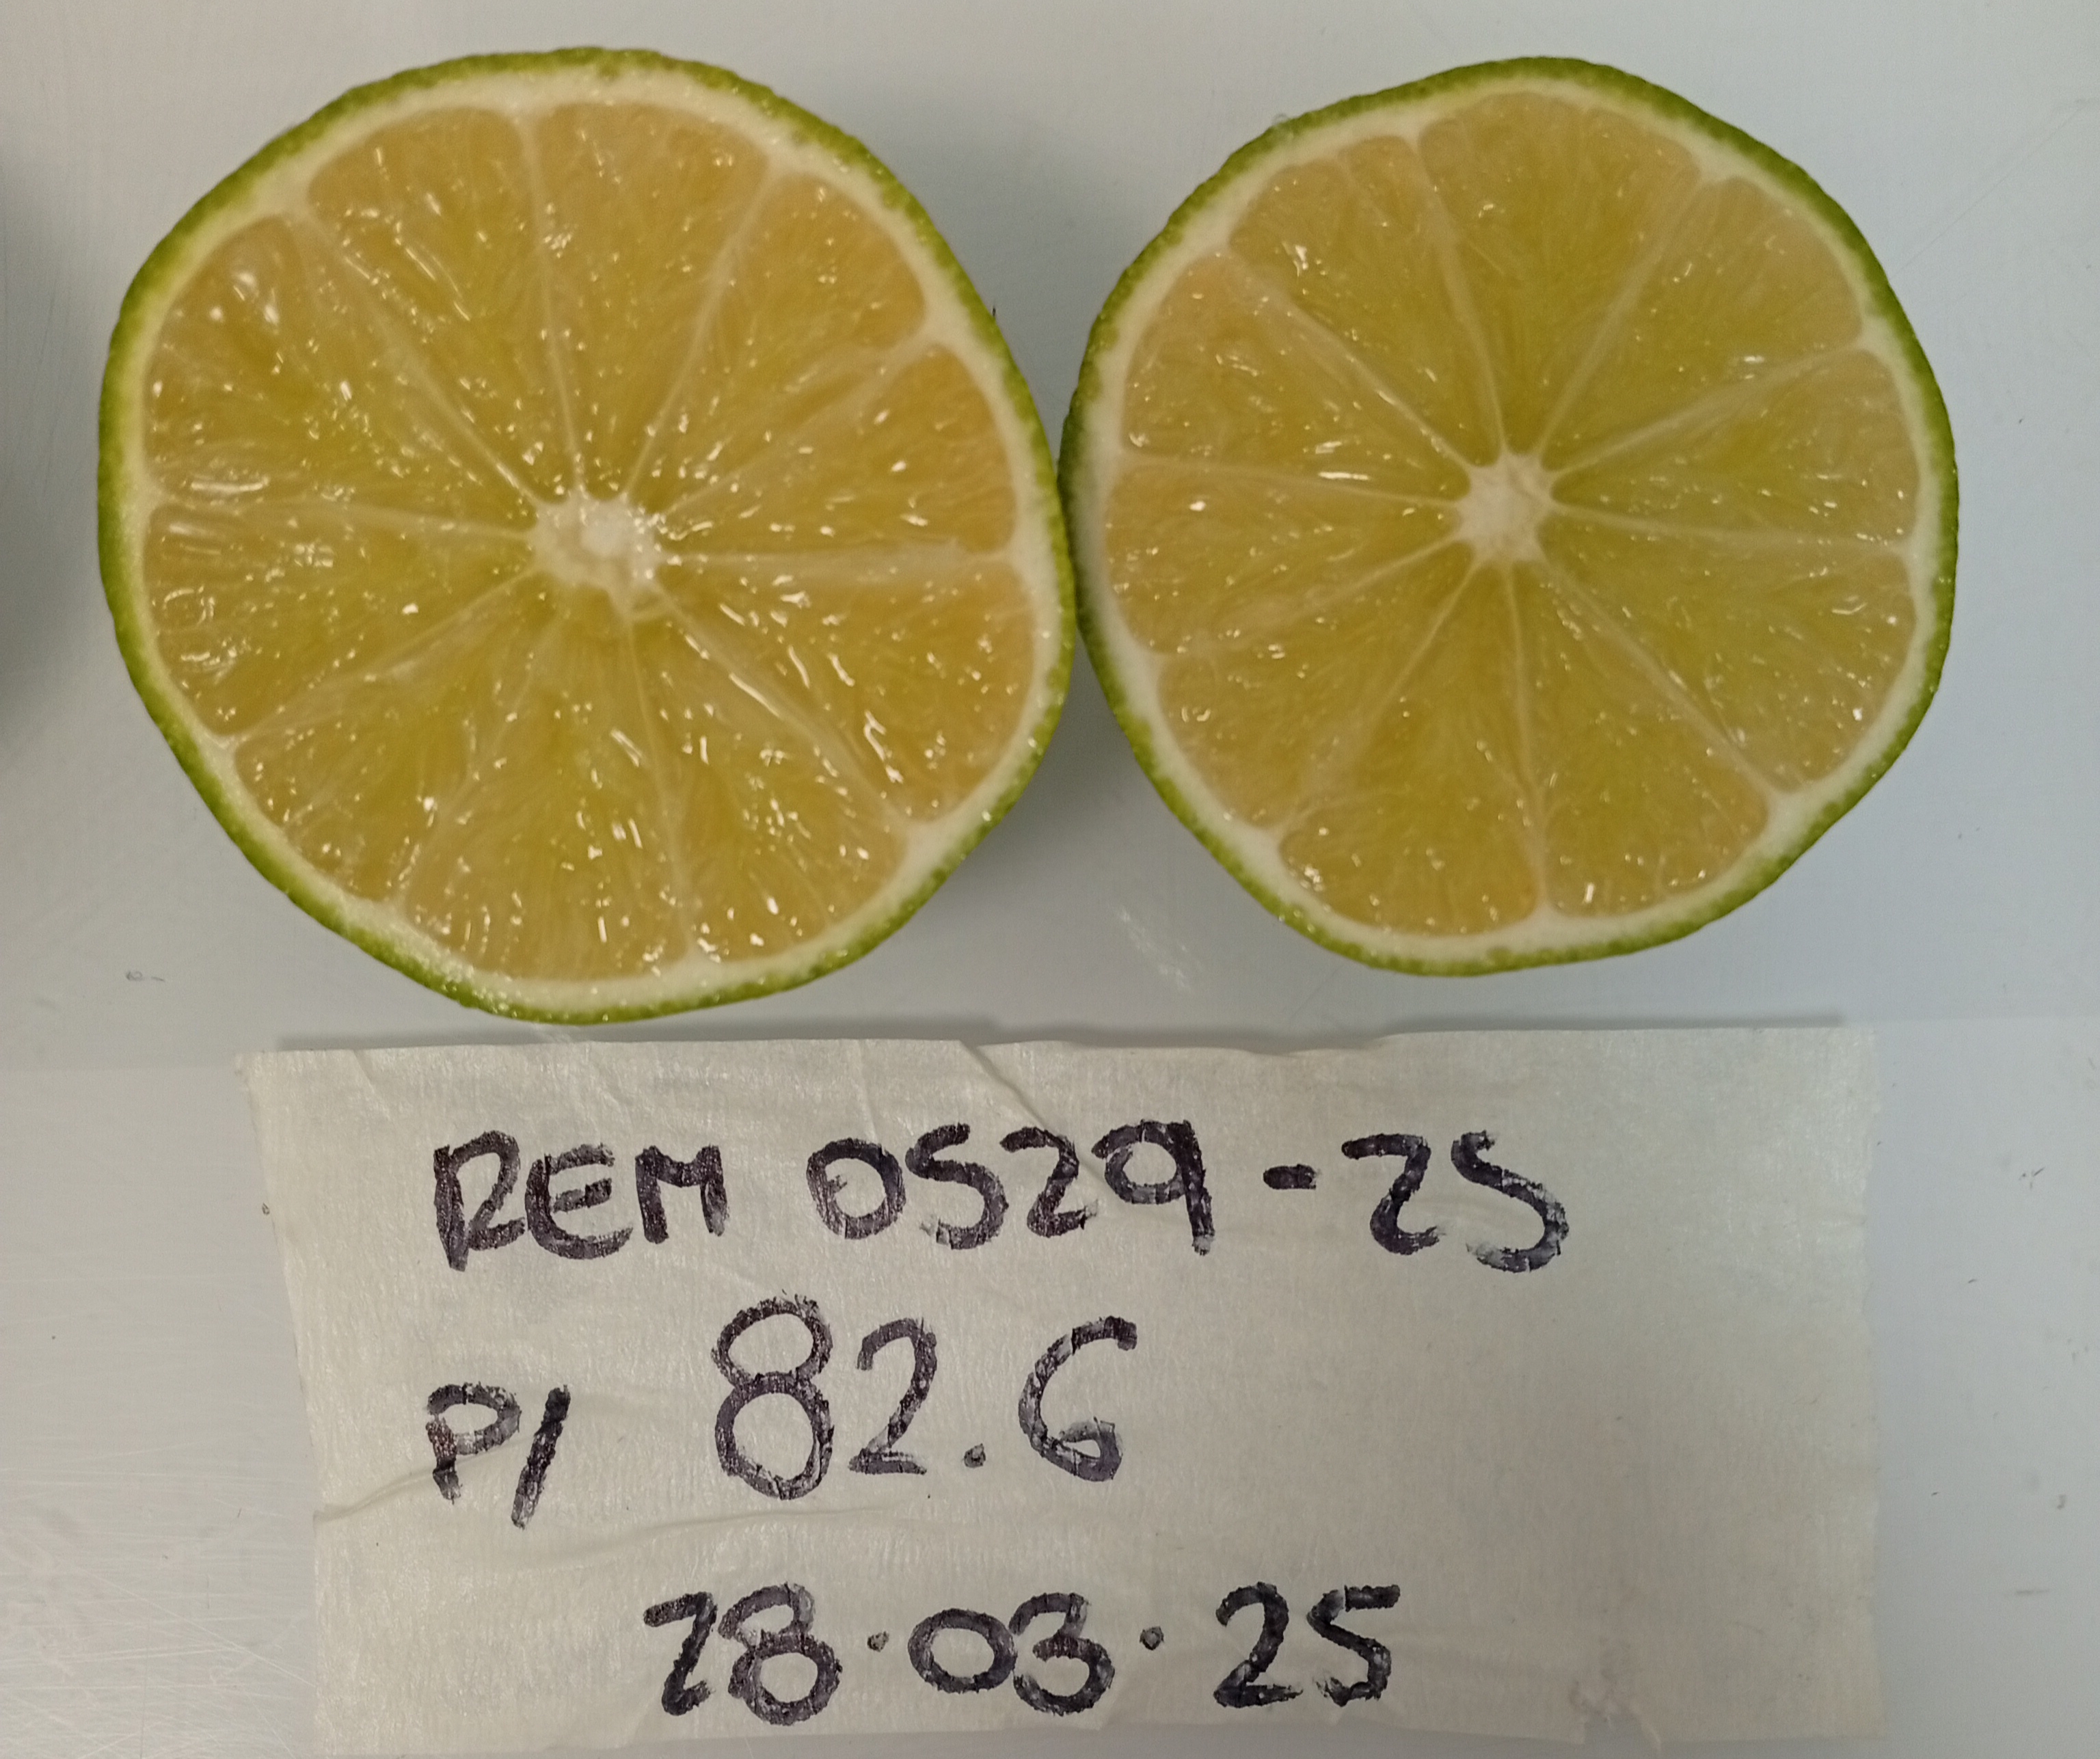 REM 0529-25
P/ 82.6
28.03.25